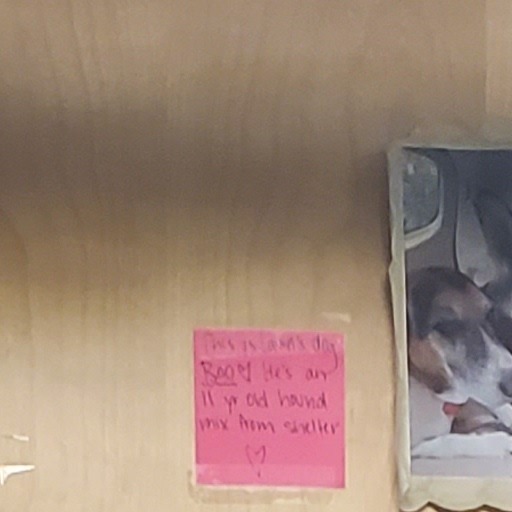 This is dog
He's an
11 yr old hound
mix from shelter
♡